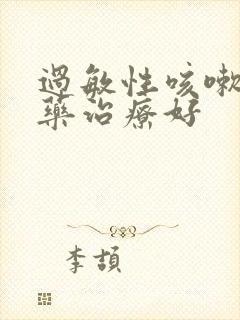 過敏性咳嗽
藥治療好
李頡